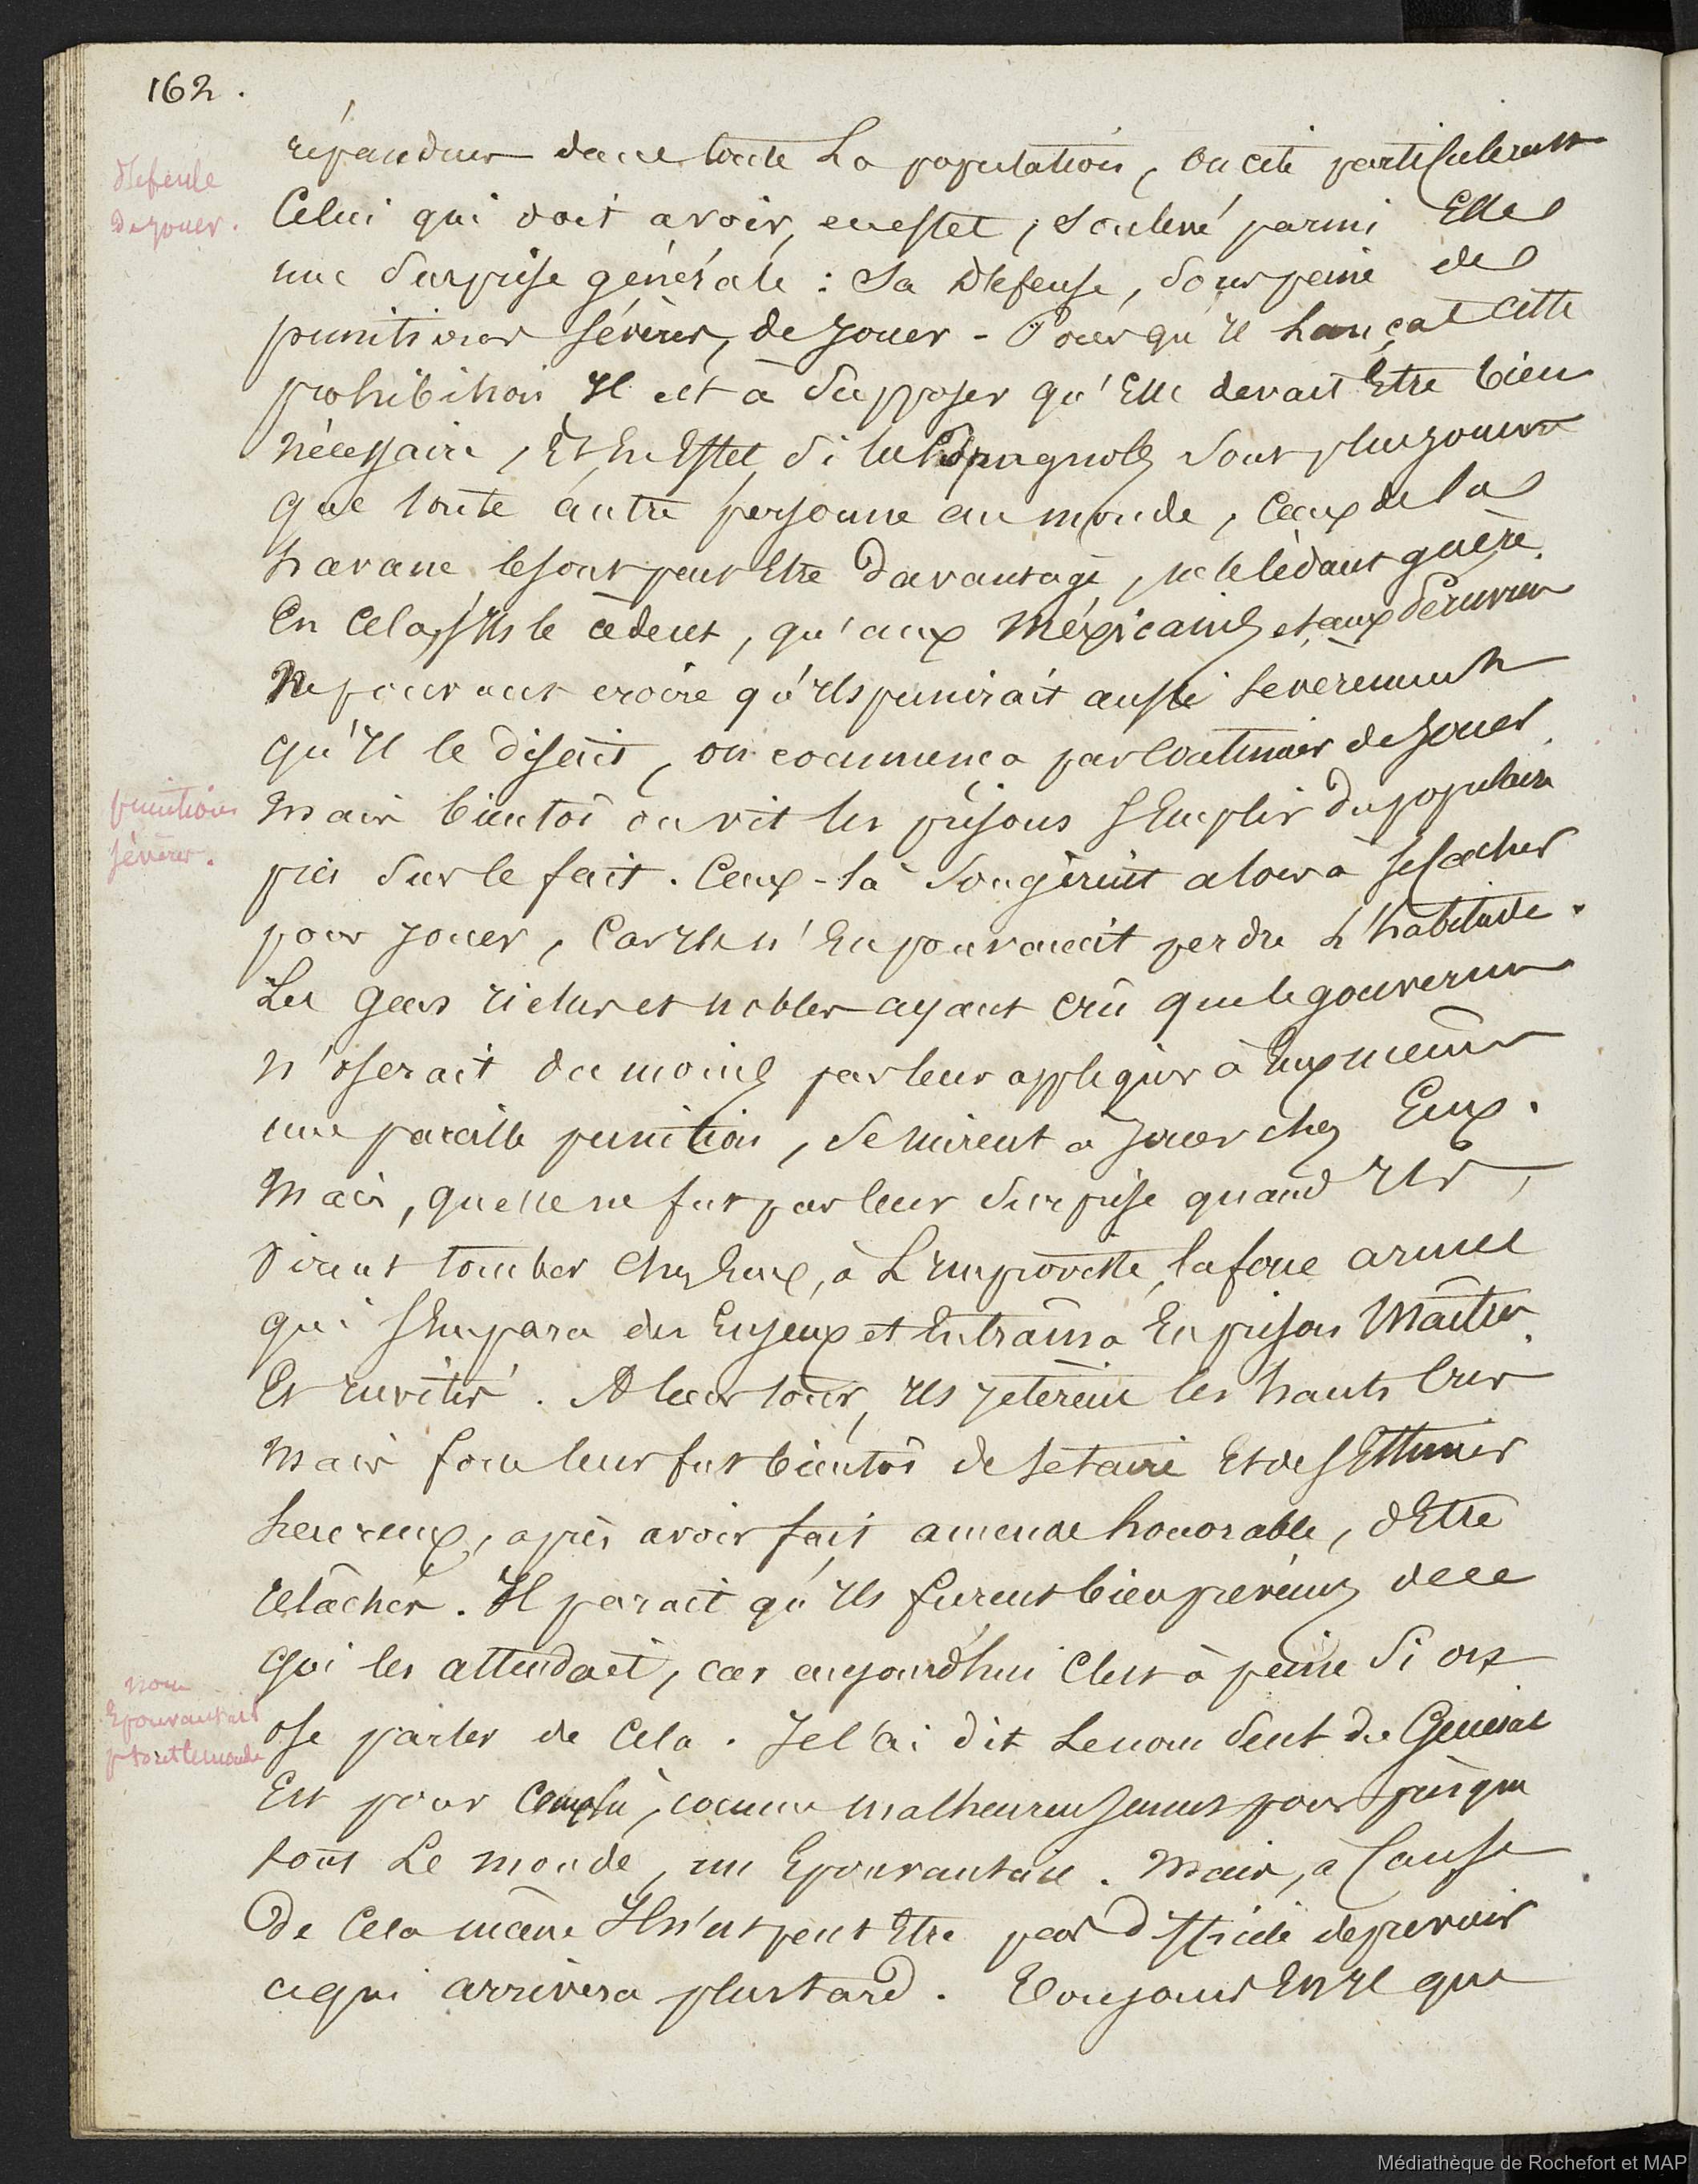 162.
répandues dans toute La population, On cite particulièremt
défense
de jouer.
Celui qui doit avoir, en effet, soulevé parmi Elles
une Surprise générale : Sa Défense, sous peine des
punitions sévères, de Jouer - Pour qu'Il Lançat cette
prohibition Il est à Supposer qu'Elle devait Etre bien
nécessaire, Et En Effet, Si les Espagnols sont plus joueurs
que toute autre personne au monde, Ceux de la
havane le sont peut Etre Davantage, ne le cèdant guère.
En Cela, s'Ils le cèdent, qu'aux Méxicains et aux Péruviens
Ne pouvant croire qu'Ils punirait aussi sevèrement
qu'Il le disait, on commença par Continuer de Jouer.
punitions
sévères.
Mais bientôt on vit les prisons s'Emplir du populaire
pris Sur le fait. Ceux-là Songèrent alors à se cacher
pour Jouer, Car Ils n'En pouvaient perdre L'habitude.
Les Gens riches et nobles ayant crû que le gouverneur
n'oserait du moins pas leur appliquer à Eux mêmes
une pareille punition, Se mirent à Jouer chez Eux.
Mais, quelle ne fut pas leur Surprise quand Ils
virent tomber Chez Eux, à L'Improviste, la force armée
qui s'Empara des Enjeux et Entraîna En prison Maîtres
Et invités. A leur tour, Ils jetèrent les hauts Cris
Mais force leur fut bientôt de se taire Et de s'Estimer
heureux, après avoir fait amende honorable, d'Etre
relâchés. Il parait qu'Ils furent bien prévenus de ce
qui les attendait, car aujourd'hui C'est à peine Si on
nom
Epouvantail
p tout le monde
ose parler de Cela. Je l'ai dit Le nom Seul du Général
Est pour , comme malheureusement pour presque
tout Le monde, un Epouvantail. Mais, à Cause
De Cela même Il n'est peut Etre pas difficile de prévoir
ce qui arrivera plus tard. Toujours Est Il que
Médiathèque de Rochefort et MAP